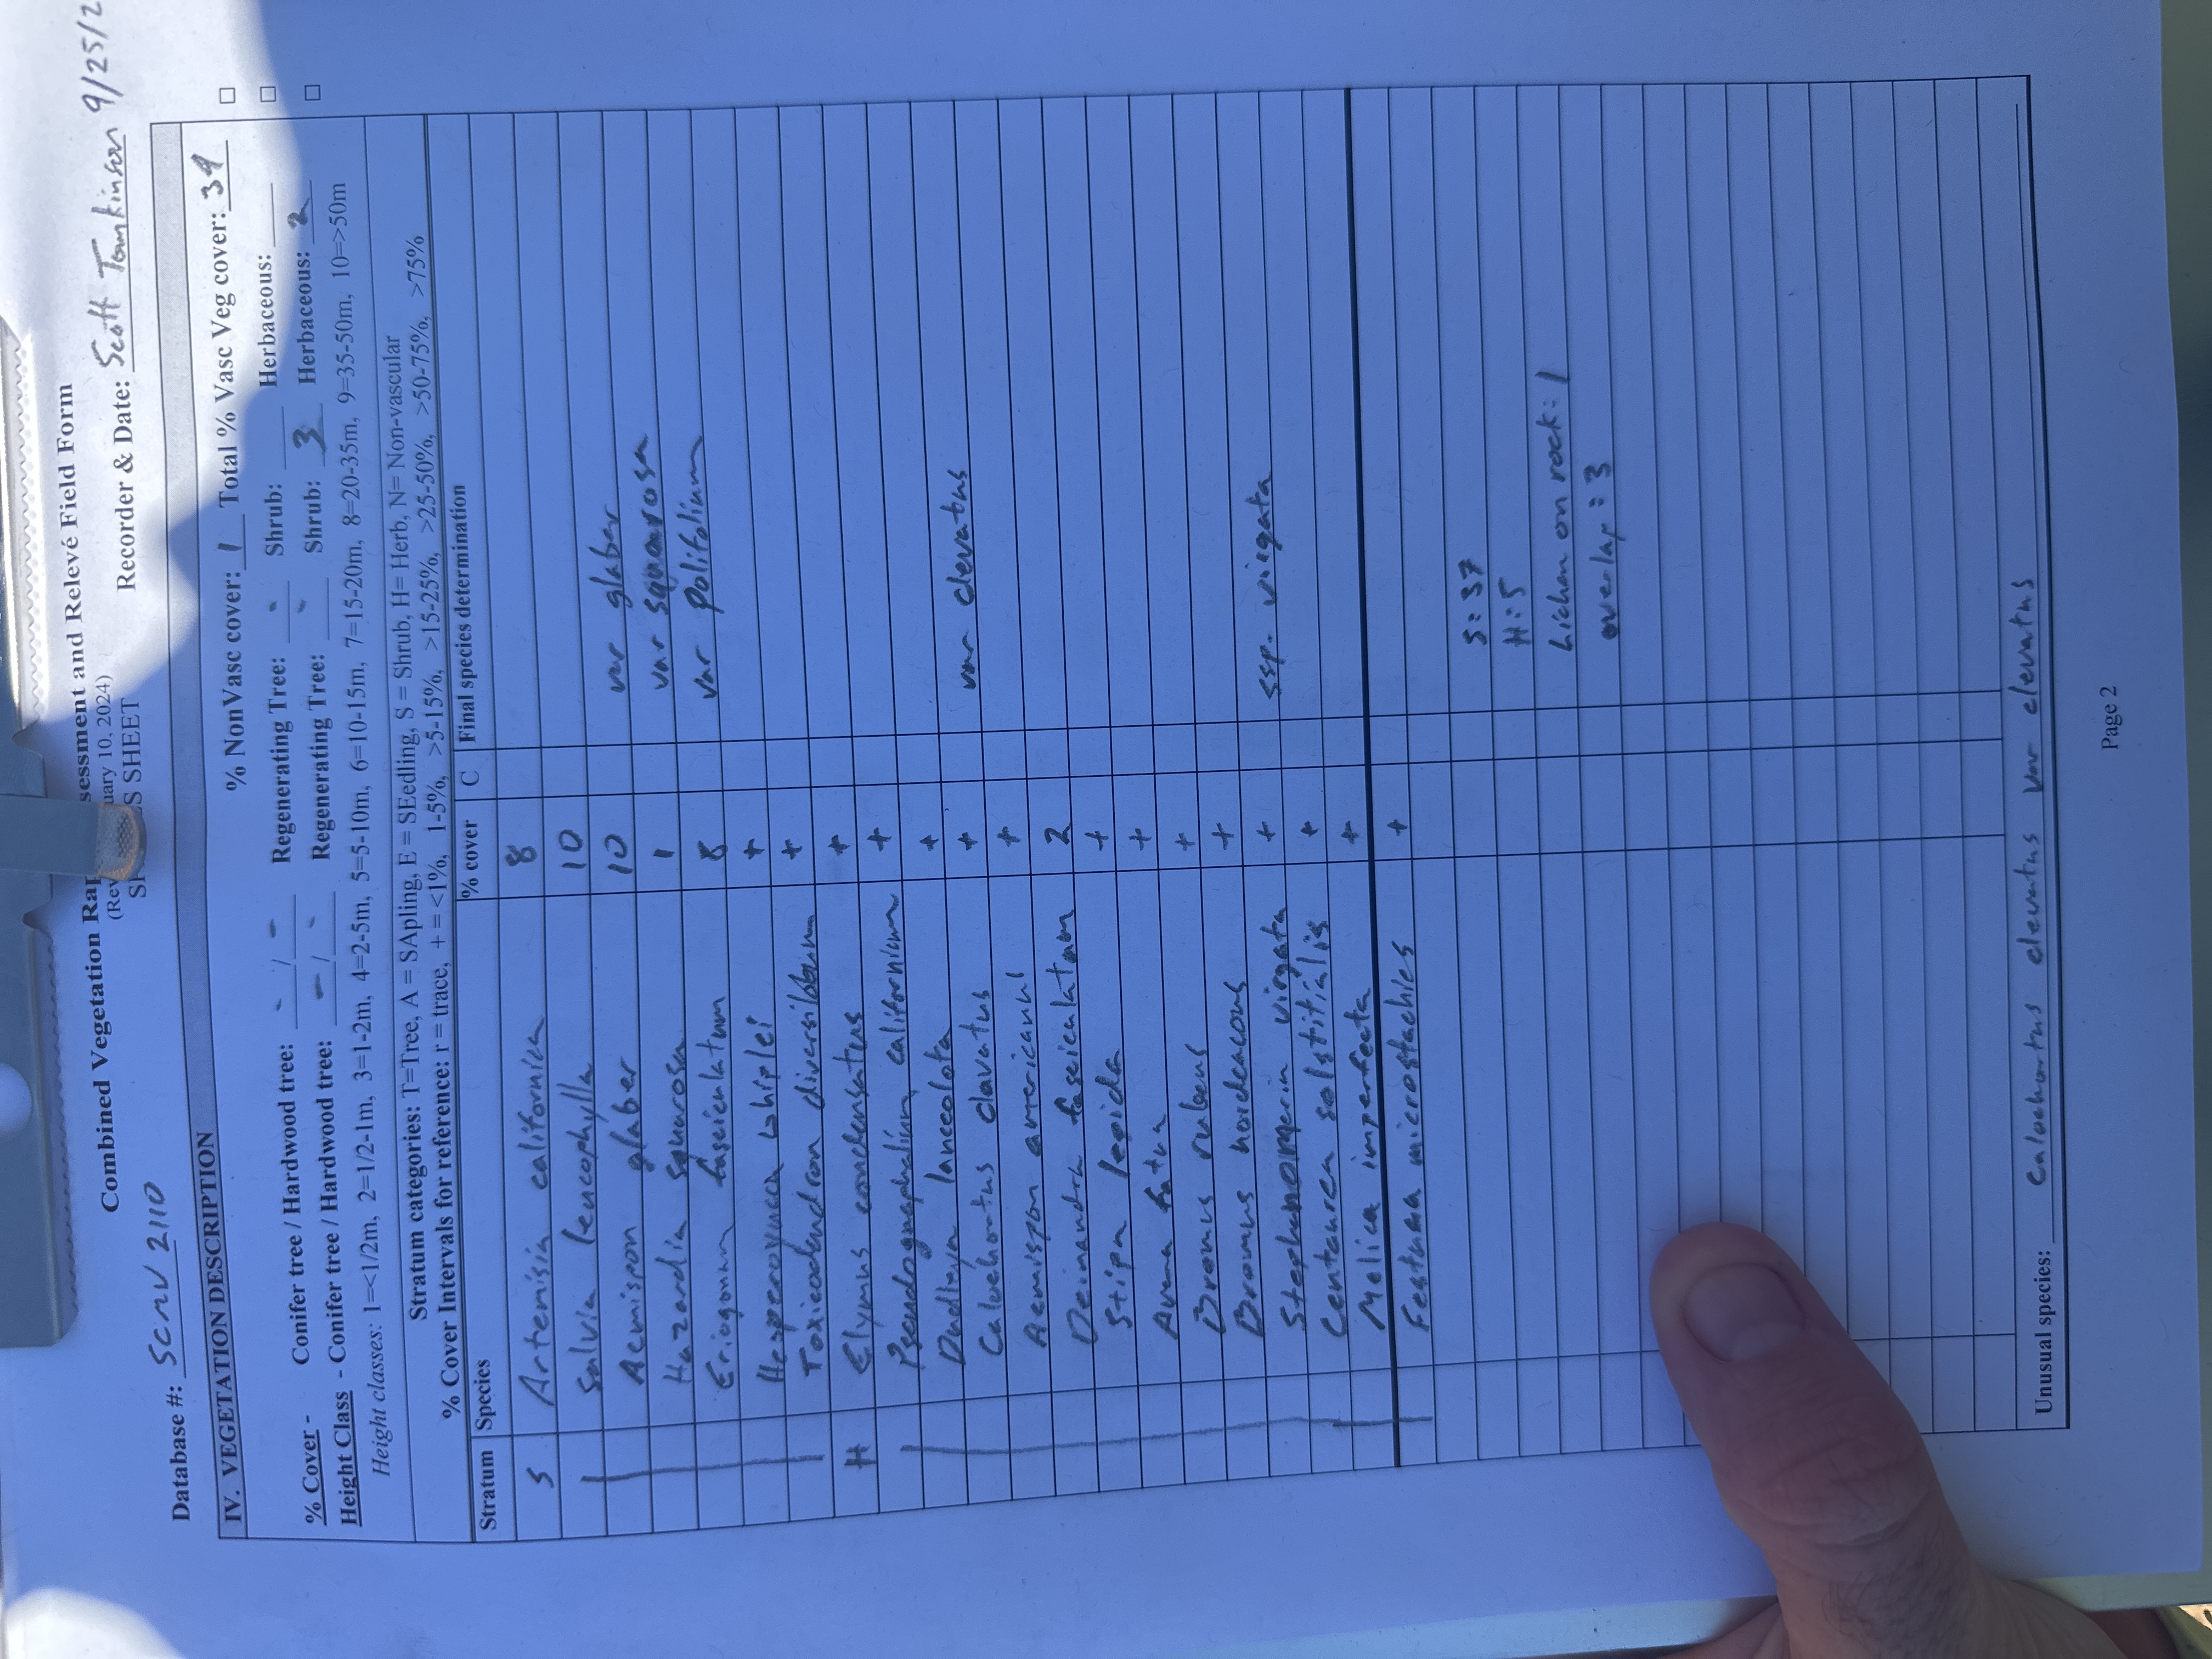 Combined Vegetation Rap sessment and Relevé Field Form
(Rev uary 10, 2024)
SHEET
Database #: SCMV 2110 Recorder & Date: Scott Tomkinson 9/25/2
IV. VEGETATION DESCRIPTION
% NonVasc cover: 1 Total % Vasc Veg cover: 39 □
% Cover - Conifer tree / Hardwood tree: - / - Regenerating Tree: - Shrub: Herbaceous: □
Height Class - Conifer tree / Hardwood tree: - / - Regenerating Tree: - Shrub: 3 Herbaceous: 2 □
Height classes: 1=<1/2m, 2=1/2-1m, 3=1-2m, 4=2-5m, 5=5-10m, 6=10-15m, 7=15-20m, 8=20-35m, 9=35-50m, 10=>50m
Stratum categories: T=Tree, A = SApling, E = SEedling, S = Shrub, H= Herb, N= Non-vascular
% Cover Intervals for reference: r = trace, + = <1%, 1-5%, >5-15%, >15-25%, >25-50%, >50-75%, >75%
Stratum Species % cover C Final species determination
S Artemisia californica 8
Salvia leucophylla 10
Acmispon glaber 10 var glaber
Hazardia squarosa 1 var squarosa
Eriogonum fasciculatum 8 var polifolium
Hesperoyucca whiplei +
Toxicodendron diversilobum +
H Elymus condensatus +
Pseudognaphalium californicum +
Dudleya lanceolata +
Calochortus clavatus + var clavatus
Acmispon americanus +
Deinandra fasciculatum 2
Stipa lepida +
Avena fatua +
Bromus rubens +
Bromus hordeaceous +
Stephenomeria virgata + ssp. virgata
Centaurea solstitialis +
Melica imperfecta +
Festuca microstachies +
S: 37
H: 5
Lichen on rock: 1
overlap: 3
Unusual species: Calochortus clavatus var clavatus
Page 2